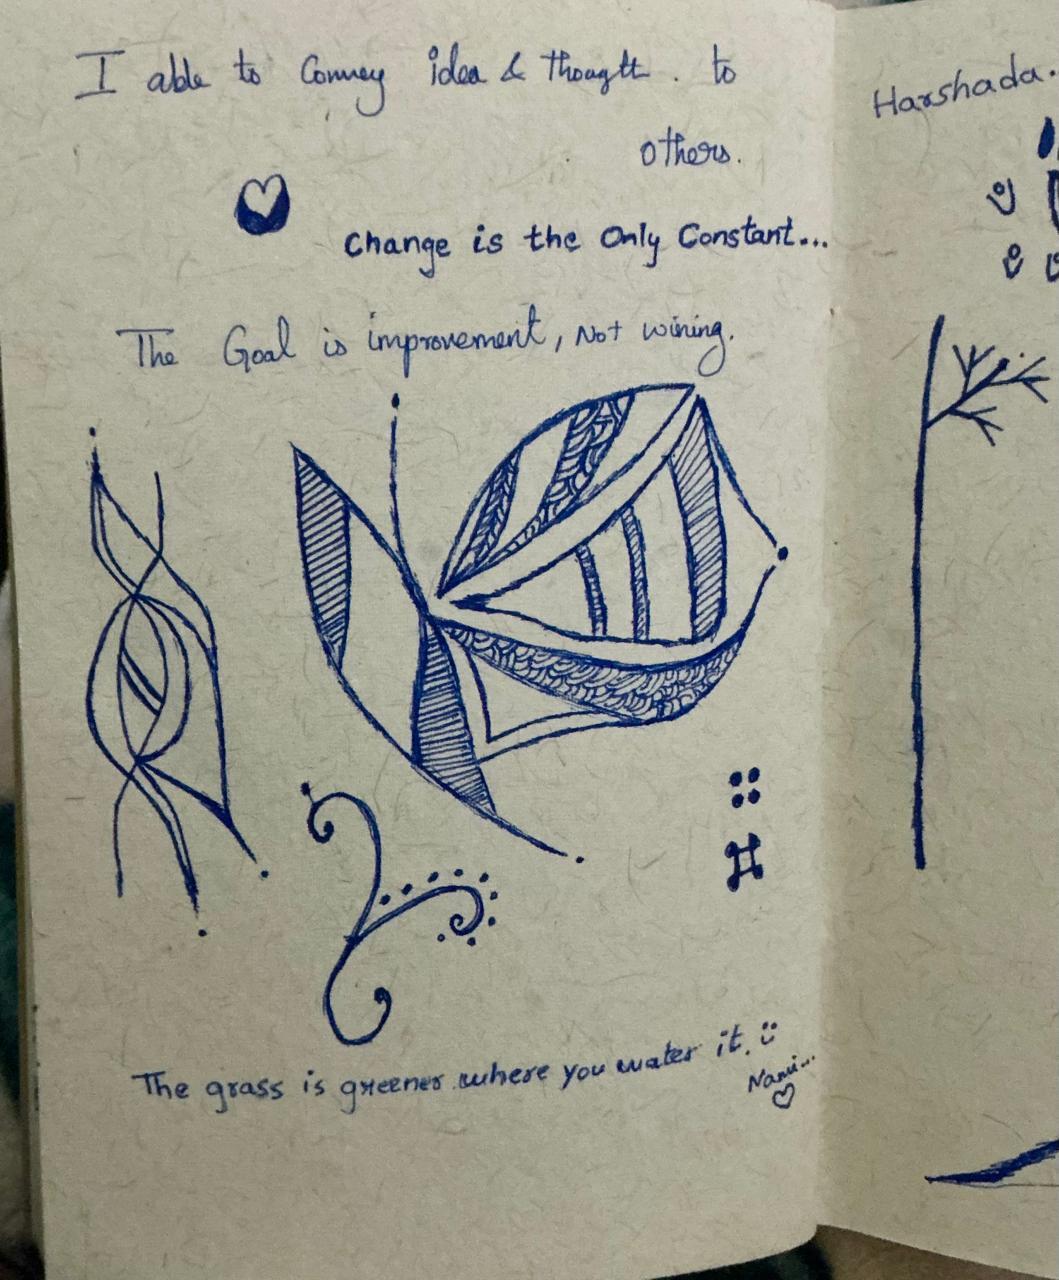 I able to Convey idea & thought. to
others.
Change is the Only Constant...
The Goal is improvement, Not wining.
The grass is greener where you water it.
Nanu...
Harshada.